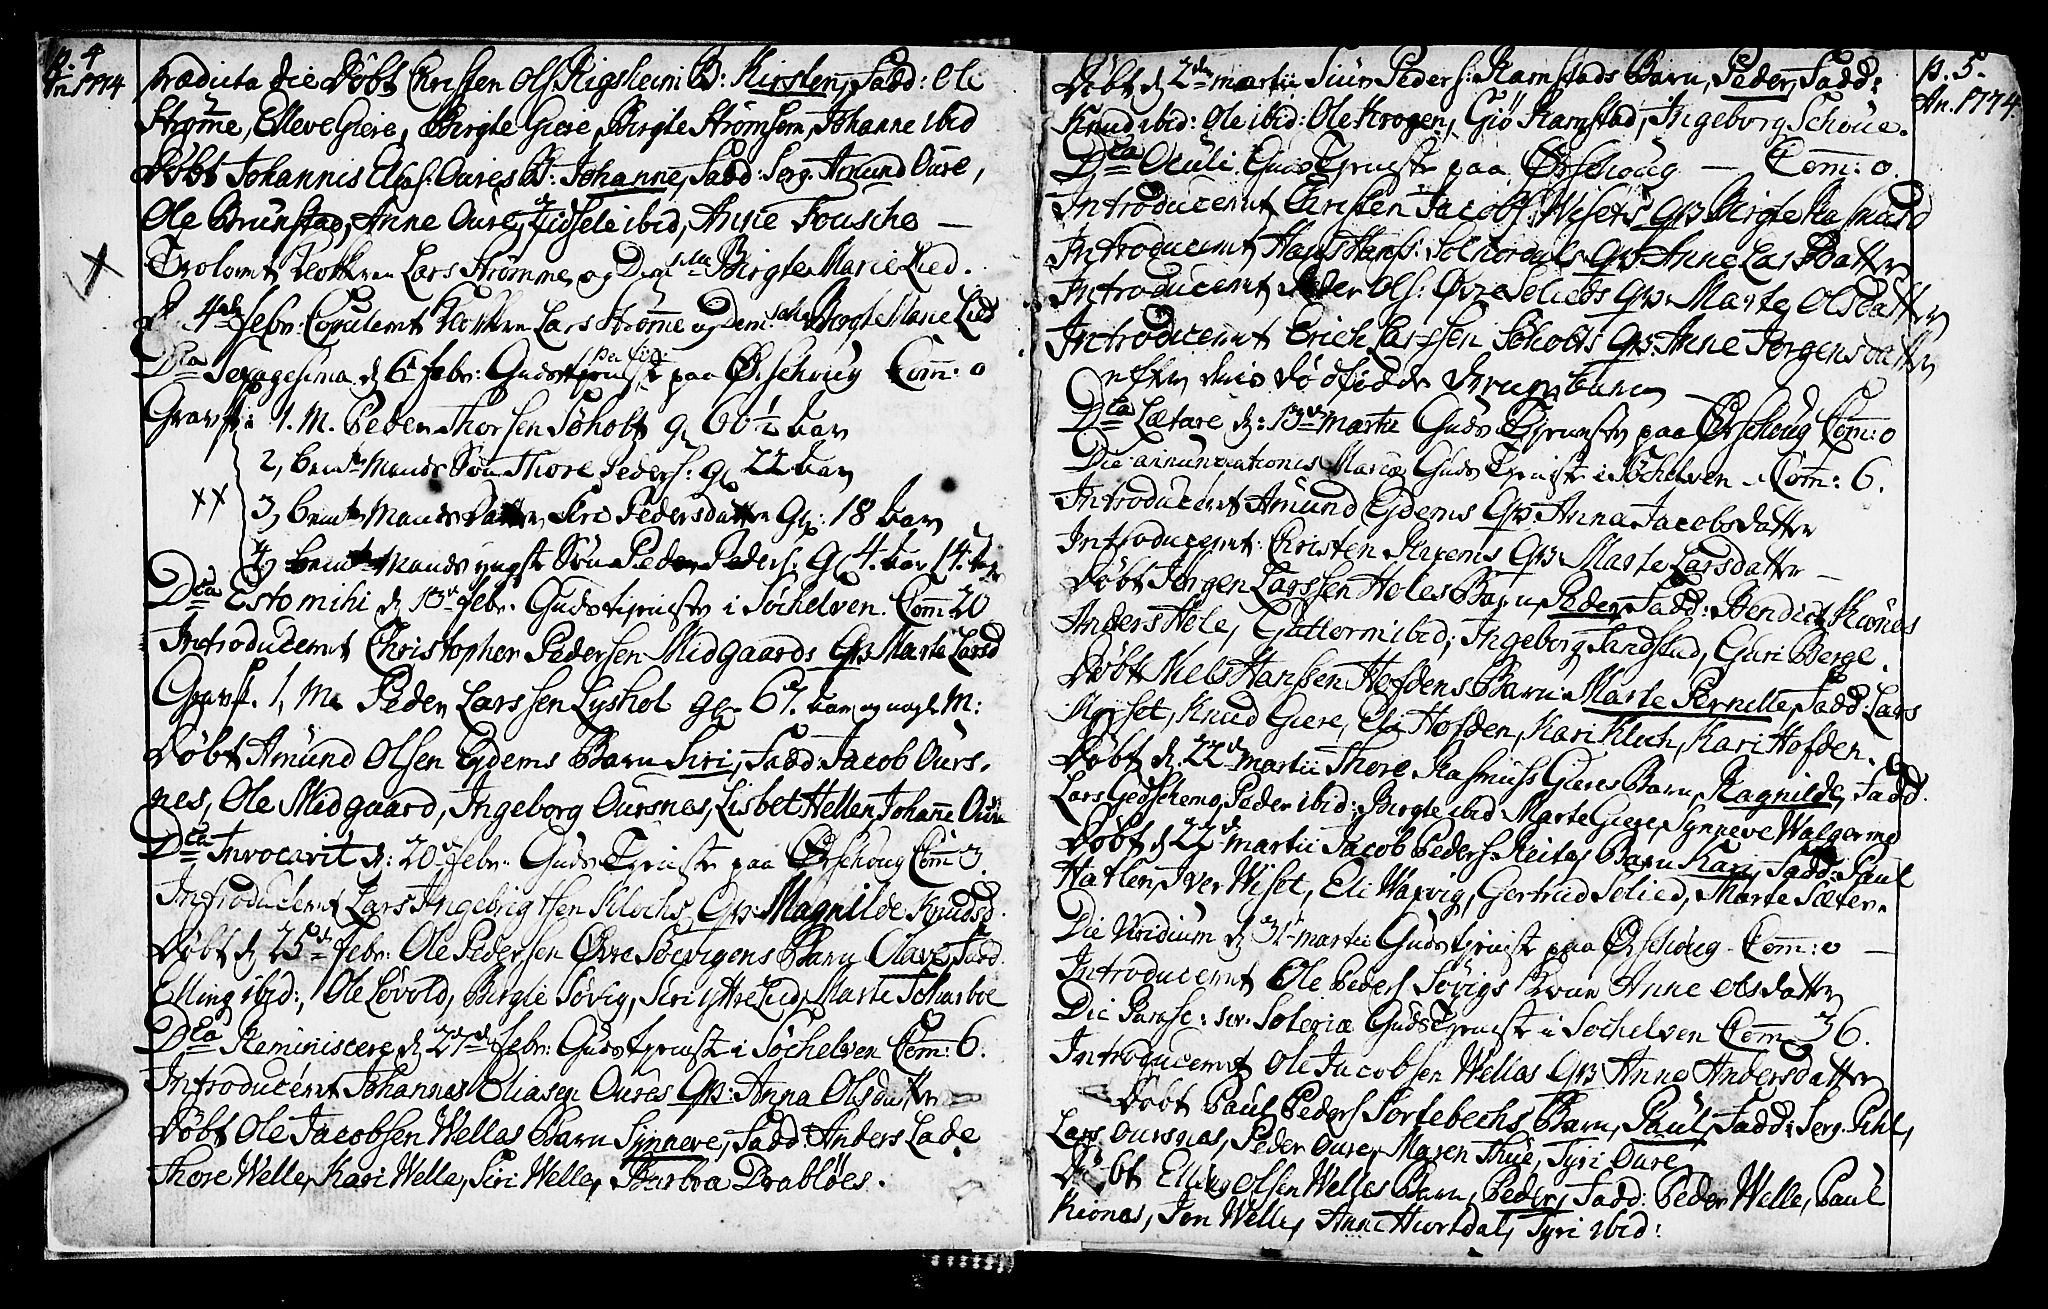 p. 4
An. 1774
prædicta die Døbt Christen Ols. Rigsheim B: Kirsten, Fadd: Ole
Strømme, Elleve Giere, Birgte Giere, Birgte Strømsem, Johanne ibid
Døbt Johannis Elias: Oures B: Johanne, Fadd: Serg. Amund Oure,
Ole Brunstad, Anne Oure, Zidsele ibid, Anne Fousche —
Trolovet Klokkeren Lars Strømme og Dem.selle Birgte Marie Lied.
D. 4de Febr: Copuleret Klokkeren Lars Strømme og Dem.selle Birgte Marie Lied
Dca Sexagesima d. 6t Febr: Gudstjeneste paa Ørschoug Com: 0
Gravf: 1. M. Peder Thorsen Søholt gl. 60 ½ Aar
2, bemte Mands Søn Thore Peders: gl. 22 Aar
XX 3, bemte Mands Datter Siri Pedersdatter Gl: 18 Aar
4, bemte Mands yngste Søn Peder Peders. gl. 4. Aar 14.
Dca Estomihi d. 13de Febr. Gudstjeneste i Søchelven. Com 20
Introduceret Christopher Pedersen Midgaards Qv. Marte Larsd
Gravf. 1, M. Peder Larssen Lyshol gl. 67. Aar og nogle M:
Døbt Amund Olsen Eydems Barn Siri, Fadd: Jacob Ours-
nes, Ole Midgaard, Ingeborg Oursnes, Lisbet Hellen Johanne Oure
Dca Invocavit d: 20de Febr. Guds Tjeneste paa Ørschoug Com 3.
Introduceret Lars Ingebrigtsen Klochs Qv: Magnilde Knudsd.
Døbt d. 25de Febr: Ole Pedersen Øvre Søevigens Barn Olave, Fadd.
Elling ibid:, Ole Lovold, Birgte Søvig, Siri Lied, Marte Scharboe
Dca Reminiscere d. 27de Febr: Gudstjeneste i Søchelven Com: 6.
Introduceret Johannes Eliasen Oures Qv: Anna Olsdatter
Døbt Ole Jacobsen Welles Barn Synneve, Fadd: Anders Lade
Thore Welle, Kari Welle, Siri Welle, Barbra Drabløes.
p. 5.
An. 1774.
Døbt d. 2den Martii Siur Peders: Ramstads Barn, Peder, Fadd:
Knud ibid: Ole ibid: Ole Krogen, Giø Ramstad, Ingeborg Schoue.
Dca Oculi Guds Tjeneste paa Ørschoug — Com: 0.
Introduceret Christen Jacobs: Wisets Qv: Birgte Rasmusd
Introduceret Hans Hans: Solnørdals Qv: Anne Lars Datter
Introduceret Peder Ols: Øvre Seliebs Qv: Marte Olsdatter
Introduceret Erich Larssen Søholts Qv: Anne Jørgensdatter
efter deris dødfødde Drenge barn
Dca Lætare d: 13de Martii Guds Tjeneste paa Ørschoug Com: 0
Die annunciationis Mariæ Guds Tjeneste i Søchelven Com: 6.
Introduceret Amund Eydems Qv: Anna Jacobsdatter
Introduceret: Christen Rexems Qv: Marte Larsdatter —
Døbt Jørgen Larssen Holes Barn, Peder, Fadd: Bendict Kiønes
Anders Hole, Guttorm ibid:, Ingeborg Sandstad, Guri Berge.
Døbt Niels Hanssen Hofdens Barn: Marte Pernille, Fadd: Lars
Wiset, Knud Giere, Eli Hofden, Kari Kloch, Kari Hofden.
Døbt d. 22de Martii Thore Rasmuss Gieres Barn, Ragnilde, Fadd.
Lars Gedschemo, Peder ibid: Birgte ibid Marte Giere, Synneve Walgermo
Døbt d. 22de Martii Jacob Peders: Reites Barn Kari, Fadd: Paul
Hatlen, Iver Wiset, Eli Waxvig, Gertrud Selied, Marte Sæter.
Die Viridium d. 31. Martii Guds tjeneste paa Ørschoug Com: 0 —
Introduceret Ole Peders Søvigs Kone Anne Olsdatter
Die Parasc: Guds Tjeneste i Søchelven Com: 36.
Introduceret Ole Jacobsen Welles Qv: Anne Andersdatter
Døbt Paul Peders Sortebechs Barn, Paul, Fadd: Serg. Pihl,
Lars Oursnes, Peder Oure, Maren Thue, Tyri Oure
Døbt Elling Olsen Welles Barn, Peder, Fadd: Peder Welle, Paul
Kiønes, Jon Welle, Anne Hiortdal, Tyri ibid: